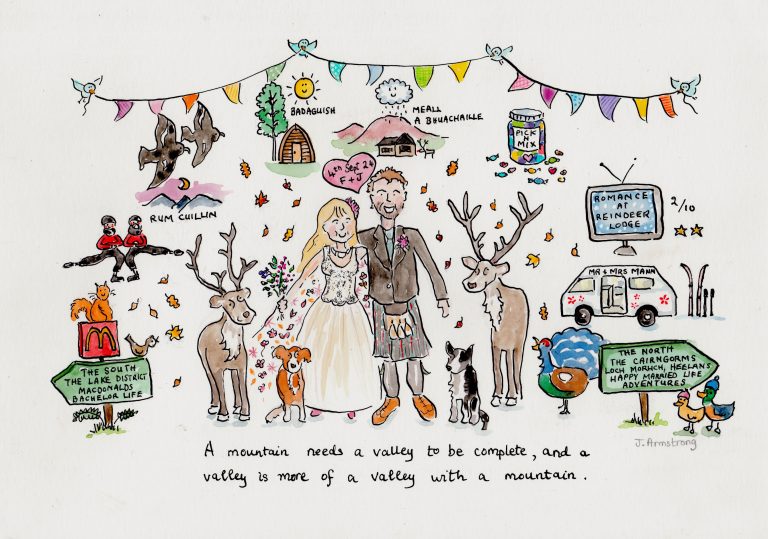 BADAGUISH
MEALL
A BHUACHAILLE
PICK
N
MIX
4th Sept 24
F + J
RUM CUILLIN
ROMANCE
AT
REINDEER
LODGE
2/10
MR & MRS MANN
M
THE SOUTH
THE LAKE DISTRICT
MACDONALDS
BACHELOR LIFE
THE NORTH
THE CAIRNGORMS
LOCH MORLICH, HEELANS
HAPPY MARRIED LIFE
ADVENTURES
J. Armstrong
A mountain needs a valley to be complete, and a
valley is more of a valley with a mountain.